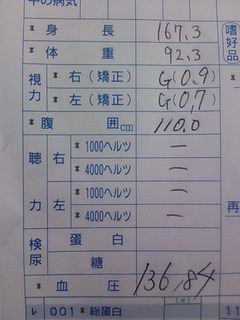 中の病気
* 身長 167.3
* 体重 92.3
視力 * 右(矯正) G(0.9)
* 左(矯正) G(0.7)
* 腹囲cm 110.0
聴力 右 * 1000ヘルツ —
* 4000ヘルツ —
左 * 1000ヘルツ —
* 4000ヘルツ —
検尿 蛋白
糖
* 血圧 136.84
レ 001 *総蛋白
嗜好品
再
11